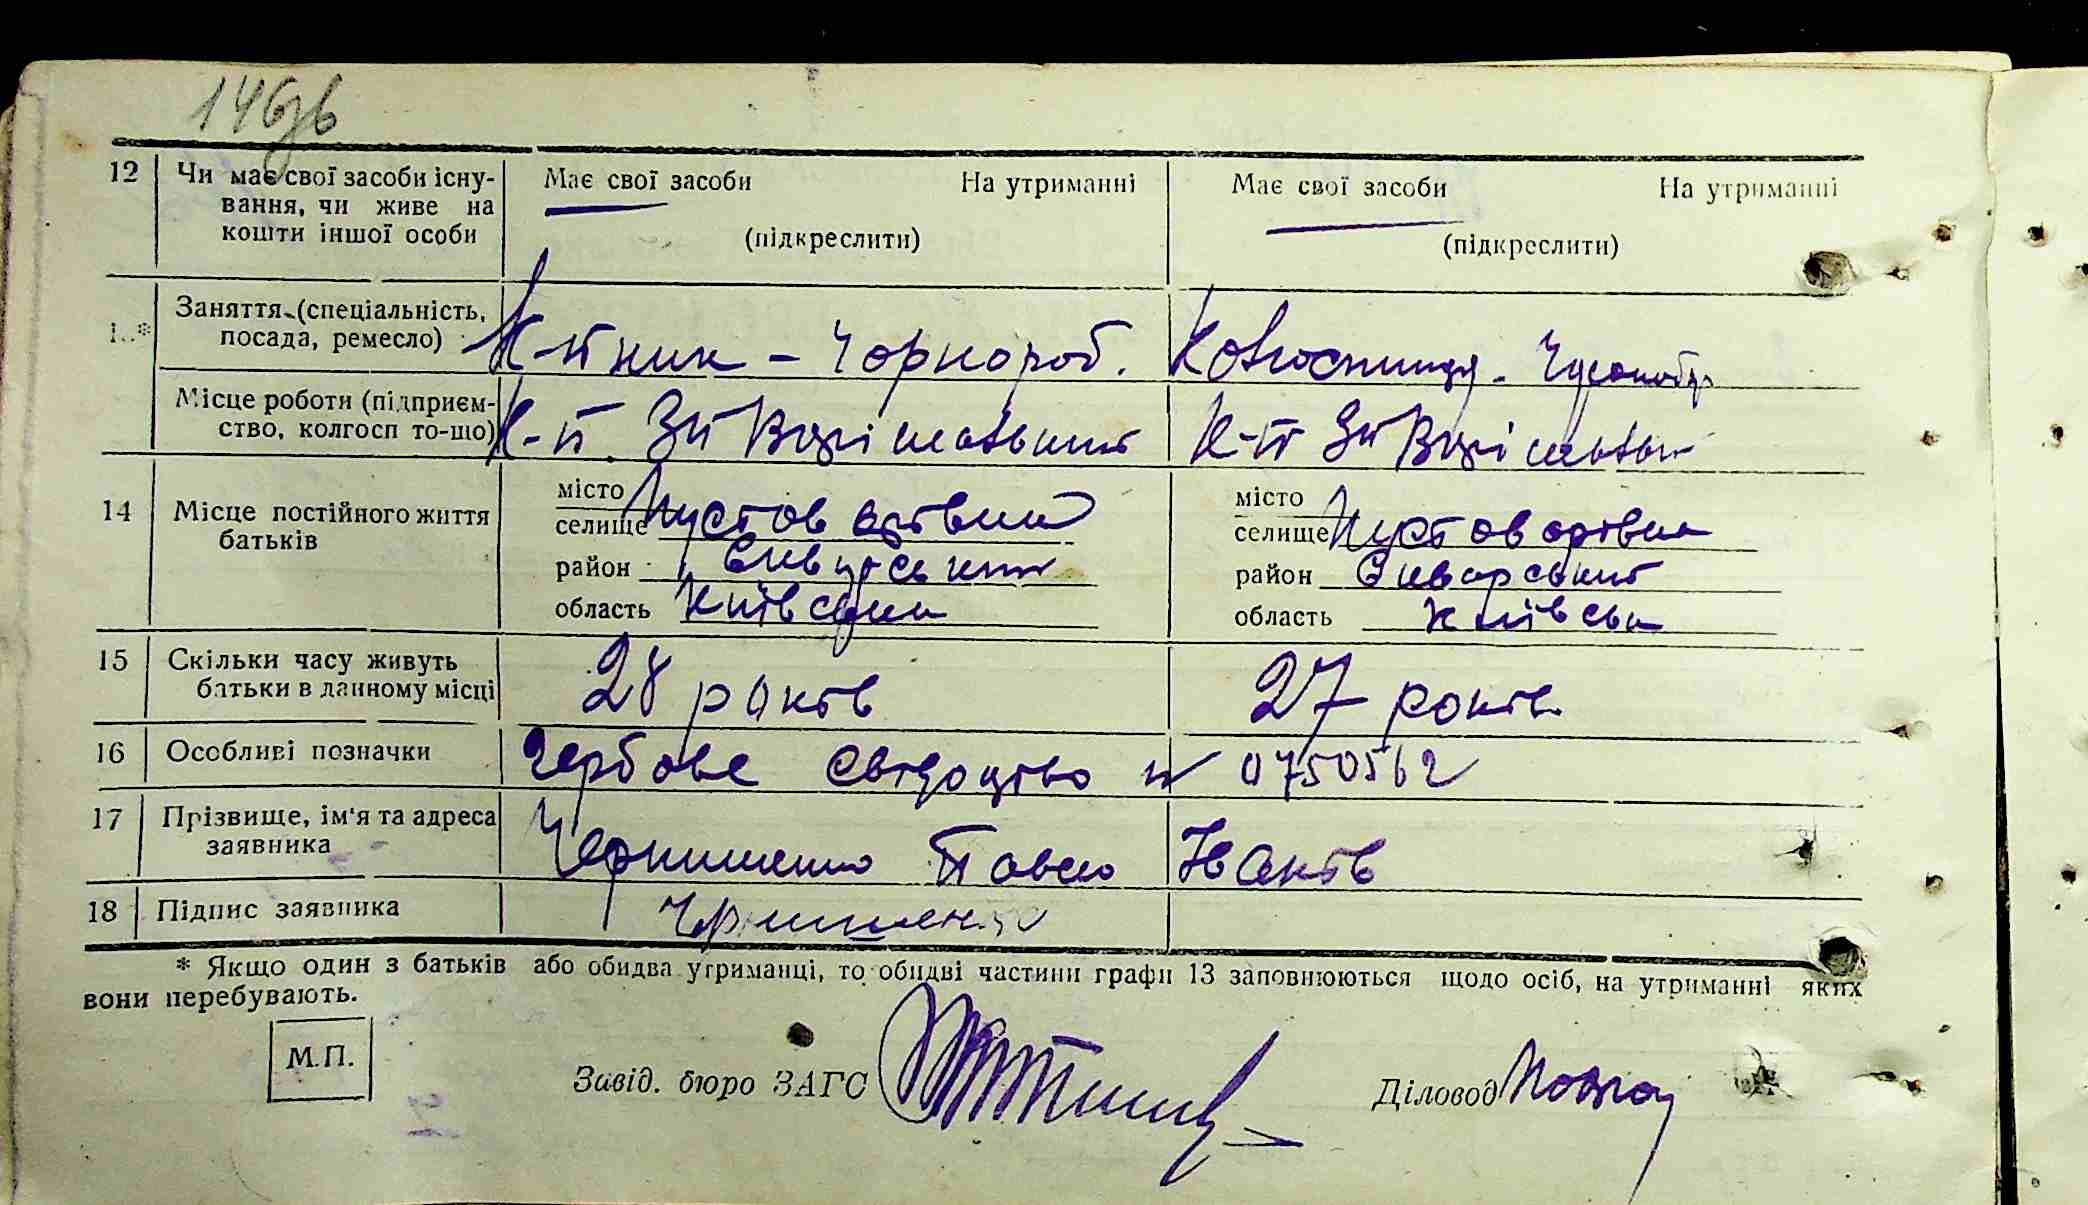 146зв
12 Чи має свої засоби існу-
вання, чи живе на
кошти іншої особи
Має свої засоби На утриманні
(підкреслити)
Має свої засоби На утриманні
(підкреслити)
Заняття (спеціальність,
посада, ремесло)
К-пник - Чорнороб. Колгоспниця -
Місце роботи (підприєм-
ство, колгосп то-що)
К-п
К-п
14 Місце постійного життя
батьків
місто
селище Пустоварівка
район Сквирський
область Київська
місто
селище Пустоварівка
район Сквирський
область Київська
15 Скільки часу живуть
батьки в данному місці
28 років 27 років
16 Особливі позначки
Гербове свідоцтво № 0750562
17 Прізвище, ім'я та адреса
заявника
Чернишенко Павло Іванів
18 Підпис заявника
Чернишенко
* Якщо один з батьків або обидва утриманці, то обидві частини графи 13 заповнюються щодо осіб, на утриманні яких
вони перебувають.
М.П.
Завід. бюро ЗАГС
Діловод